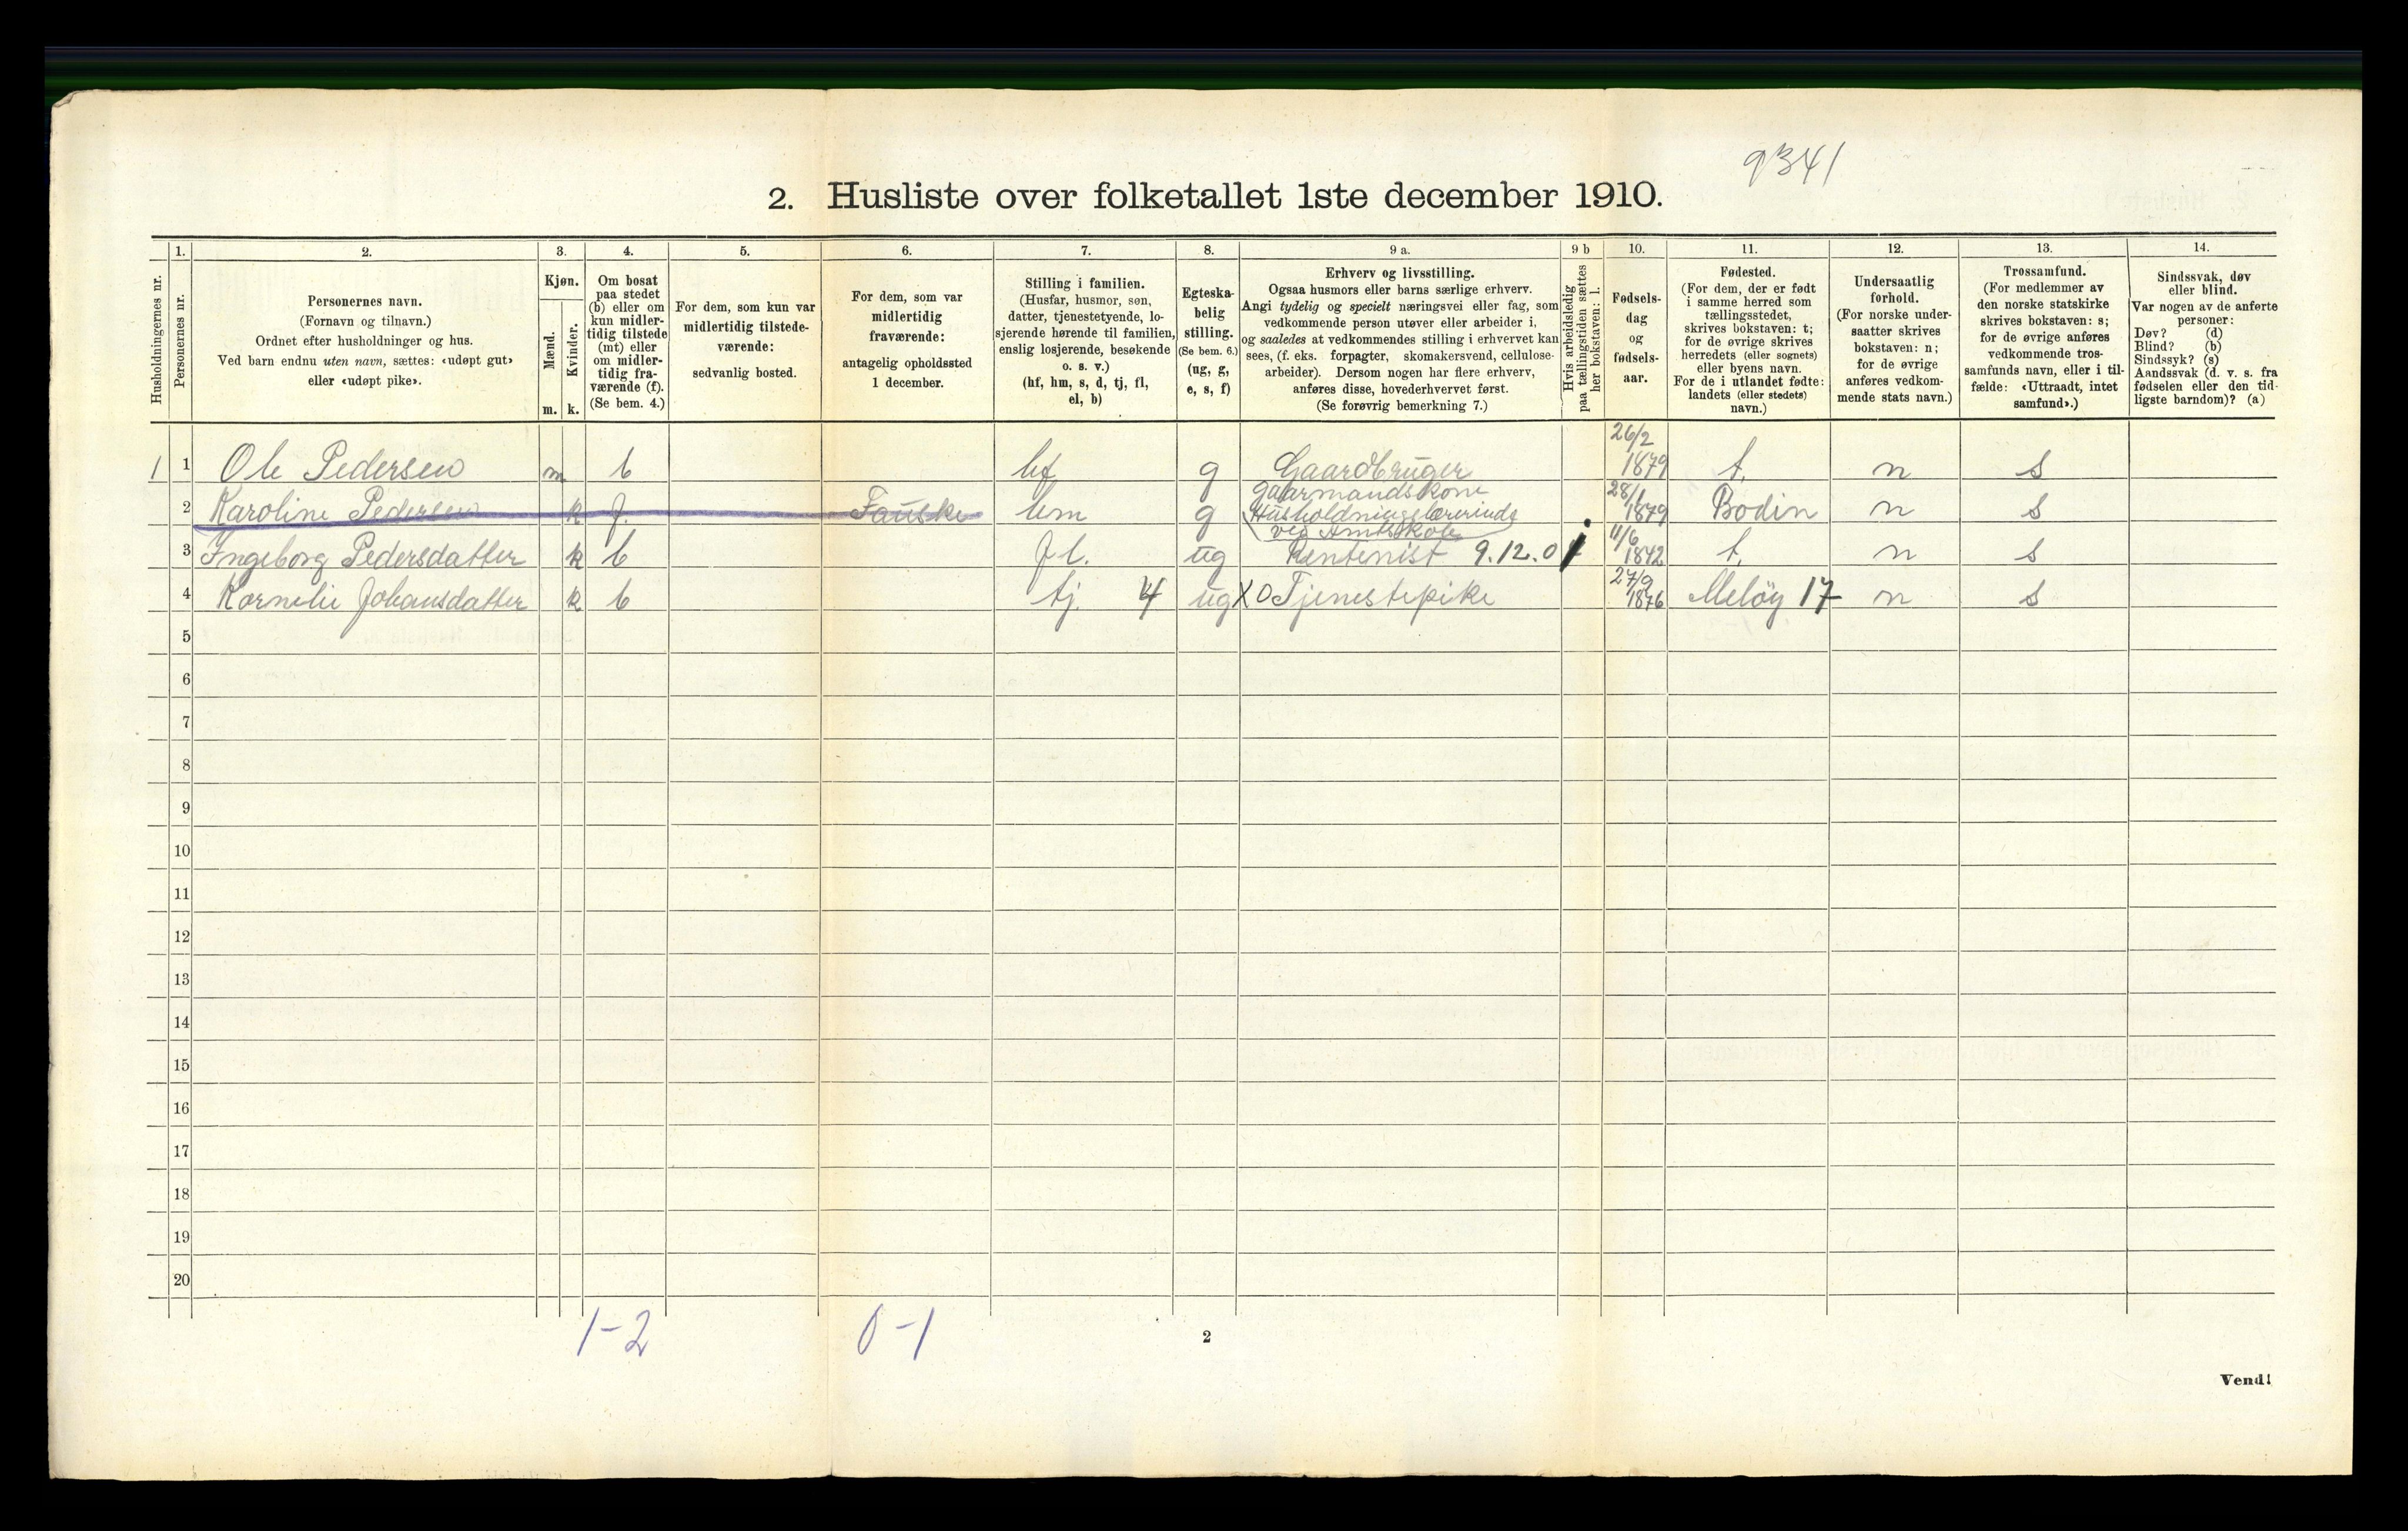 9341
2. Husliste over folketallet 1ste december 1910.
Husholdningernes nr.
1.
Personernes nr.
2.
Personernes navn.
(Fornavn og tilnavn.)
Ordnet efter husholdninger og hus.
Ved barn endnu uten navn, sættes: «udøpt gut»
eller «udøpt pike».
3.
Kjøn.
Mænd.
Kvinder.
m. k.
4.
Om bosat
paa stedet
(b) eller om
kun midler-
tidig tilstede
(mt) eller
om midler-
tidig fra-
værende (f).
(Se bem. 4.)
5.
For dem, som kun var
midlertidig tilstede-
værende:
sedvanlig bosted.
6.
For dem, som var
midlertidig
fraværende:
antagelig opholdssted
1 december.
7.
Stilling i familien.
(Husfar, husmor, søn,
datter, tjenestetyende, lo-
sjerende hørende til familien,
enslig losjerende, besøkende
o. s. v.)
(hf, hm, s, d, tj, fl,
el, b)
8.
Egteska-
belig
stilling.
(Se bem. 6.)
(ug, g,
e, s, f)
9 a.
Erhverv og livsstilling.
Ogsaa husmors eller barns særlige erhverv.
Angi tydelig og specielt næringsvei eller fag, som
vedkommende person utøver eller arbeider i,
og saaledes at vedkommendes stilling i erhvervet kan
sees, (f. eks. forpagter, skomakersvend, cellulose-
arbeider). Dersom nogen har flere erhverv,
anføres disse, hovederhvervet først.
(Se forøvrig bemerkning 7.)
9 b
Hvis arbeidsledig
paa tællingstiden sættes
her bokstaven: l.
10.
Fødsels-
dag
og
fødsels-
aar.
11.
Fødested.
(For dem, der er født
i samme herred som
tællingsstedet,
skrives bokstaven: t;
for de øvrige skrives
herredets (eller sognets)
eller byens navn.
For de i utlandet fødte:
landets (eller stedets)
navn.)
12.
Undersaatlig
forhold.
(For norske under-
saatter skrives
bokstaven: n;
for de øvrige
anføres vedkom-
mende stats navn.)
13.
Trossamfund.
(For medlemmer av
den norske statskirke
skrives bokstaven: s;
for de øvrige anføres
vedkommende tros-
samfunds navn, eller i til-
fælde: «Uttraadt, intet
samfund».)
14.
Sindssvak, døv
eller blind.
Var nogen av de anførte
personer:
Døv? (d)
Blind? (b)
Sindssyk? (s)
Aandssvak (d. v. s. fra
fødselen eller den tid-
ligste barndom)? (a)
1 1 Ole Pedersen m b hf g Gaardbruger 26/2 1879 t. n s
2 Karoline Pedersen k f. Fauske hm g gaarmandskone (Husholdningslærerinde ved Amtskole 28/1 1879 Bodin n s
3 Ingeborg Pedersdatter k b fl. ug Rentenist 9.12.0 11/6 1842 t. n s
4 Kornelie Johansdatter k b tj. 4 ug X O Tjenestepike 27/9 1876 Meløy 17 n s
5
6
7
8
9
10
11
12
13
14
15
16
17
18
19
20
1-2 0-1
2
Vend!